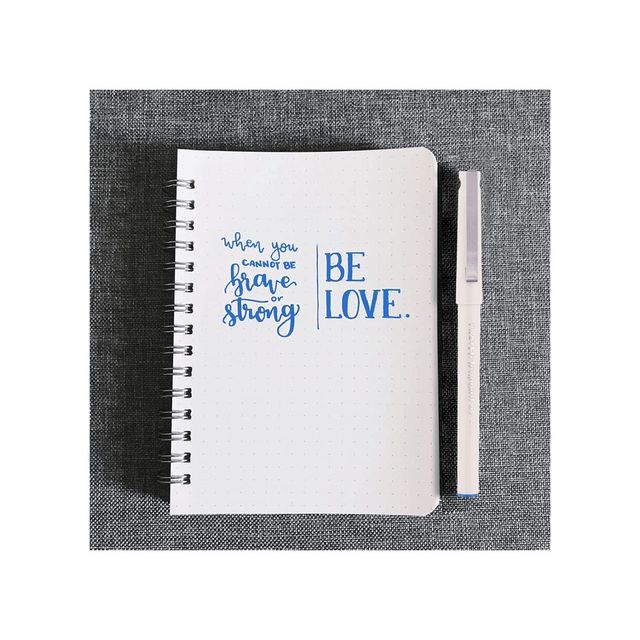 when you
CANNOT BE
brave
or
strong
BE
LOVE.